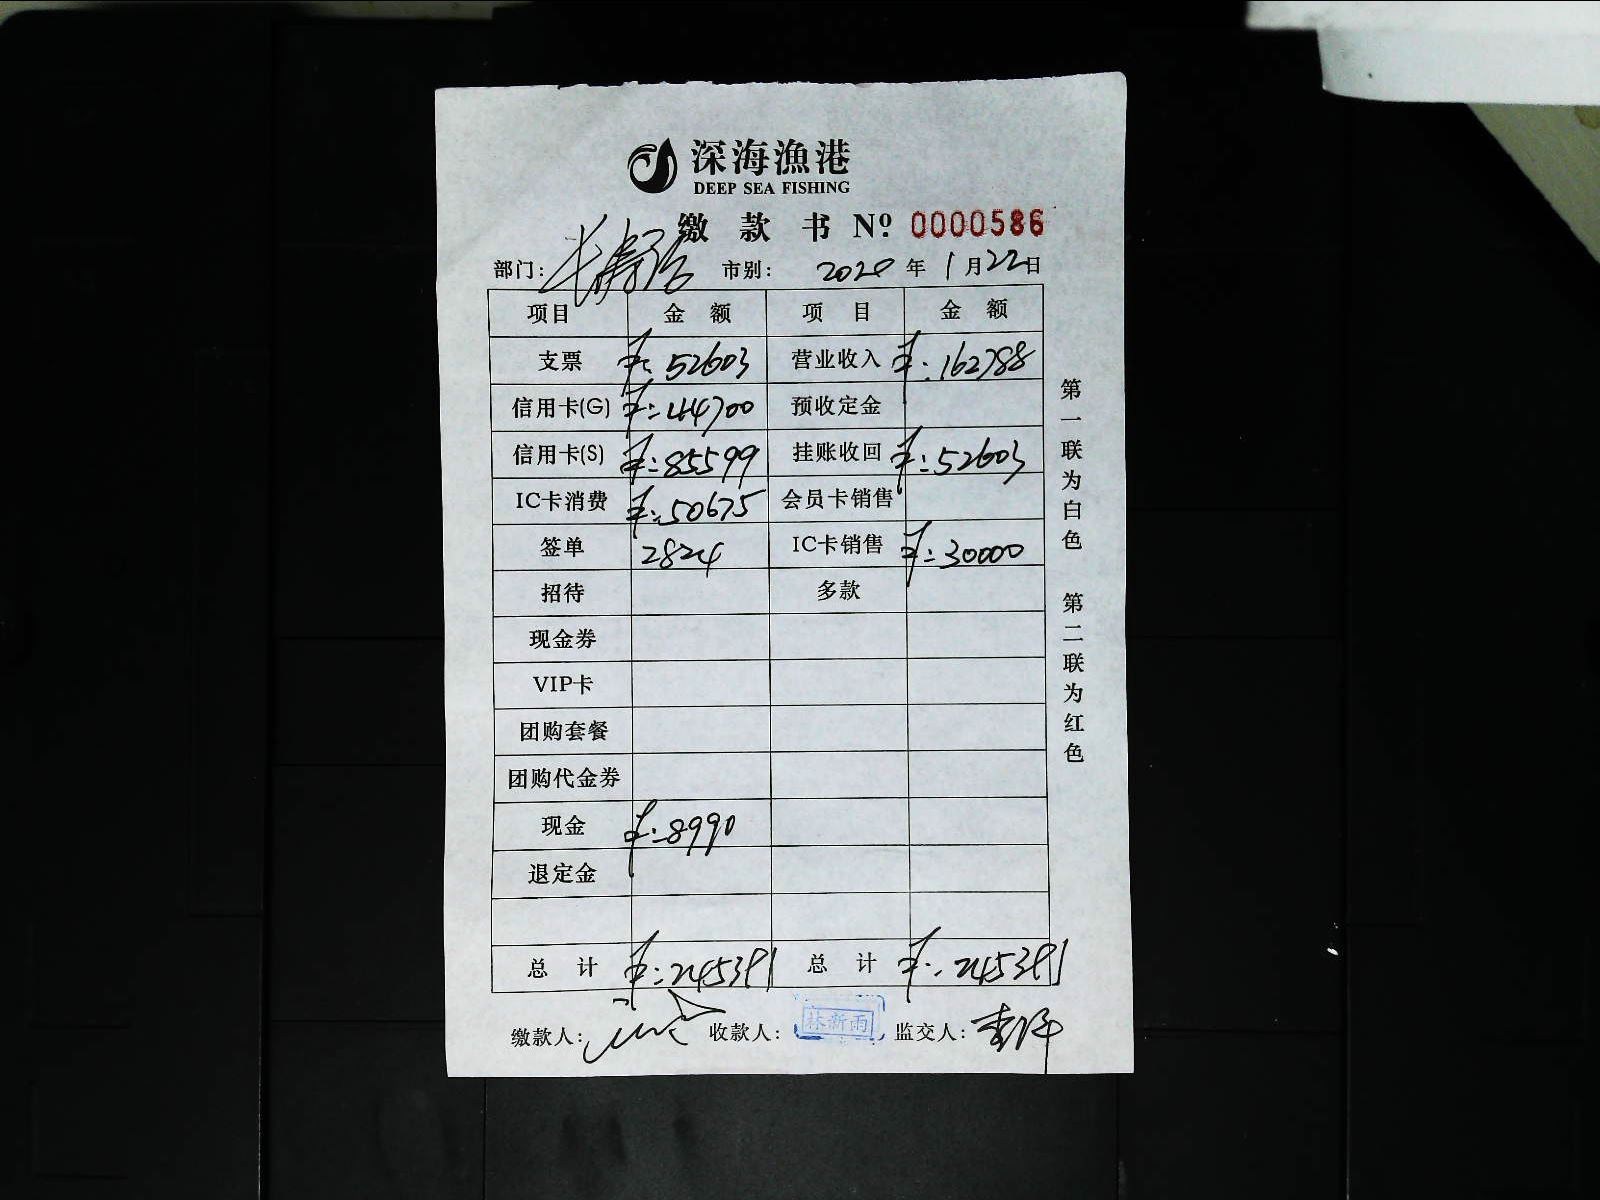 深海漁港
DEEP SEA FISHING
缴款书 Nº 0000586
部门: 长寿路 市别: 2020年1月22日
项目 金额 项目 金额
支票 ¥:52603 营业收入 ¥:162788
信用卡(G) ¥:44700 预收定金
信用卡(S) ¥:85599 挂账收回 ¥:52603
IC卡消费 ¥:50675 会员卡销售
签单 2824 IC卡销售 ¥:30000
招待 多款
现金券
VIP卡
团购套餐
团购代金券
现金 ¥:8990
退定金
总计 ¥:245391 总计 ¥:245391
缴款人: 收款人: 林新雨 监交人:
第一联为白色 第二联为红色